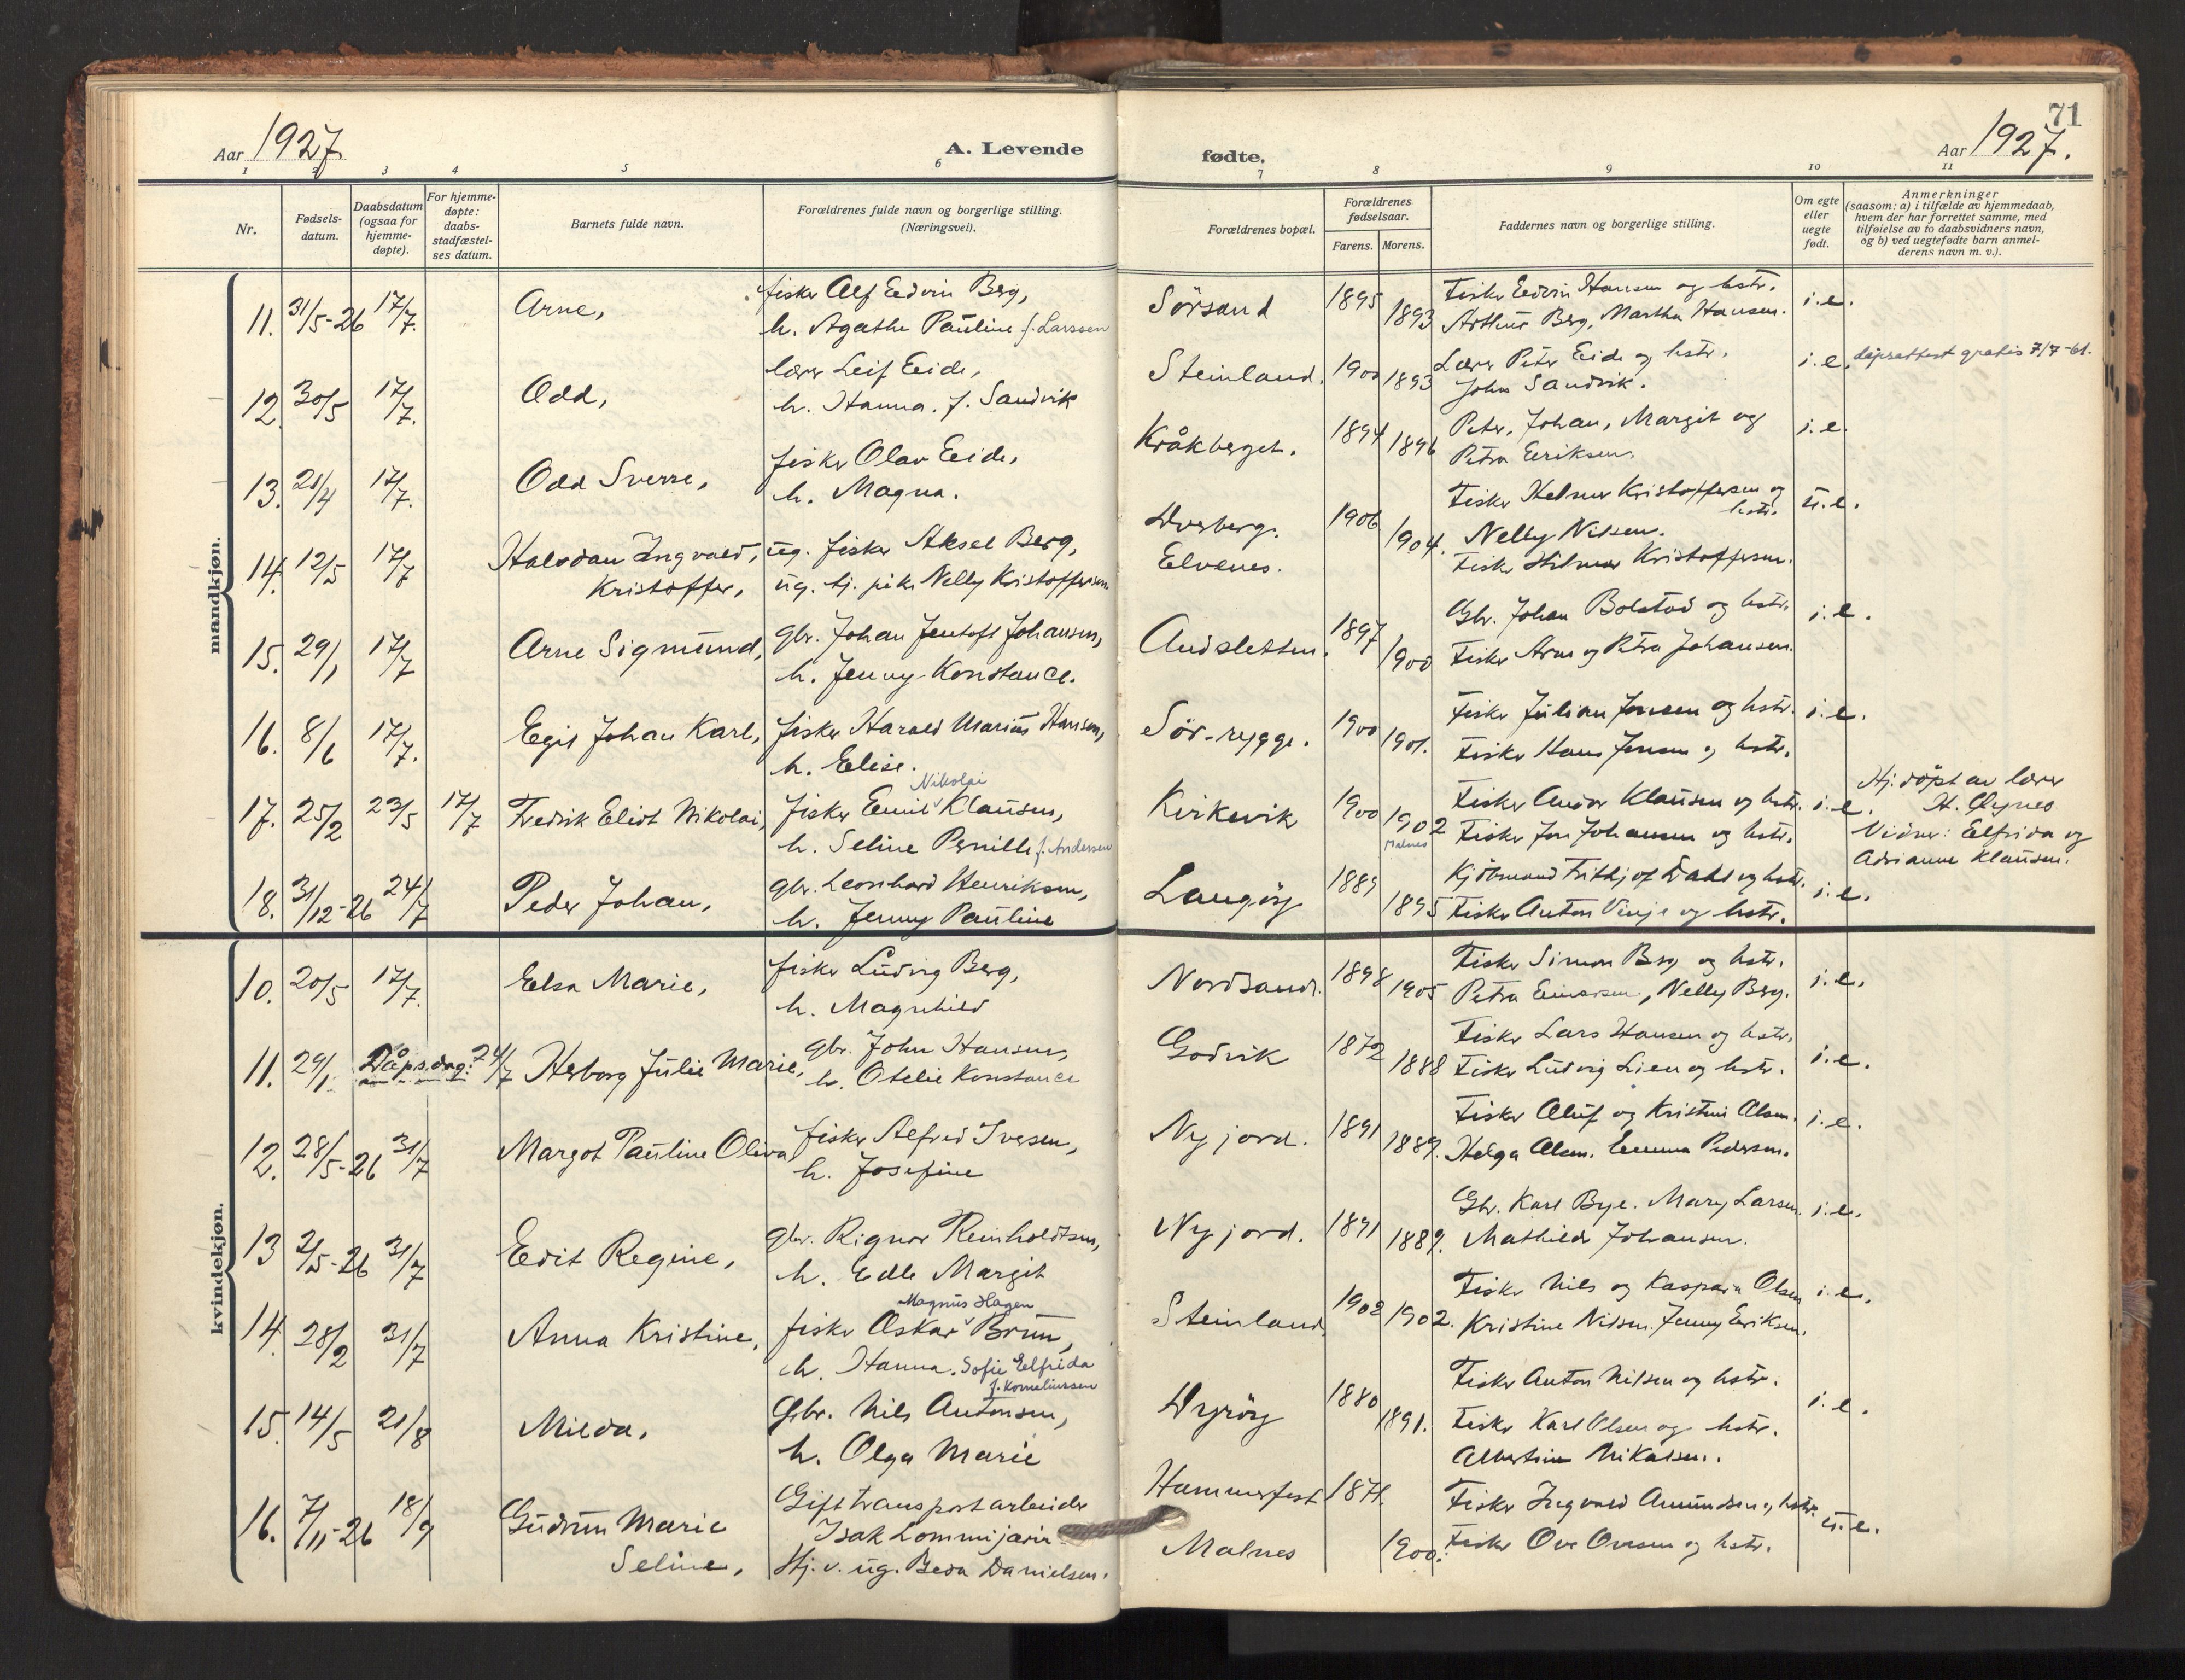 71
Aar 1927
A. Levende
fødte.
Aar 1927.
1 2 3 4 5 6 7 8 9 10 11
Nr.
Fødsels-
datum.
Daabsdatum
(ogsaa for
hjemme-
døpte).
For hjemme-
døpte:
daabs-
stadfæstel-
ses datum.
Barnets fulde navn.
Forældrenes fulde navn og borgerlige stilling.
(Næringsvei).
Forældrenes bopæl.
Forældrenes
fødselsaar.
Farens. Morens.
Faddernes navn og borgerlige stilling.
Om egte
eller
uegte
født.
Anmerkninger
(saasom: a) i tilfælde av hjemmedaab,
hvem der har forrettet samme, med
tilføielse av to daabsvidners navn,
og b) ved uegtefødte barn anmel-
derens navn m. v.).
mandkjøn.
11. 31/5-26 17/7. Arne,
fisker Alf Edvin Berg,
h. Agathe Pauline f. Larssen
Sörsand 1895 1893
Fisker Edvin Hansen og hstr.
Arthur Berg, Martha Hansen.
i.e.
12. 30/5 17/7. Odd,
lærer Leif Eide,
h. Hanna. f. Sandvik
Steinland. 1900 1893
Lærer Peter Eide og hstr.
John Sandvik.
i.e. dåpsattest gratis 7/7-61.
13. 21/4 17/7. Odd Sverre,
fisker Olav Eide,
h. Magna.
Kråkberget. 1894 1896
Peter, Johan, Margit og
Petra Eriksen.
i.e.
14. 12/5 17/7 Halvdan Ingvald,
Kristoffer,
ug. fisker Aksel Berg,
ug. hj. pike Nelly Kristoffersen
Dverberg.
Elvenes.
1906 1904.
Fisker Helmer Kristoffersen og
hstr.
Nelly Nilsen.
Fisker Hilmar Kristoffersen.
u.e.
15. 29/1 17/7 Arne Sigmund,
gbr. Johan Jentoft Johansen,
h. Jenny Konstance.
Andsletten. 1897 1900
Gbr. Johan Bolstad og hstr.
Fisker Arne og Petra Johansen.
i.e.
16. 8/6 17/7. Egil Johan Karl,
fisker Harald Marius Hansen,
h. Elise.
Sör-rygge. 1900 1901.
Fisker Julian Jensen og hstr.
Fisker Hans Jensen og hstr.
i.e.
17. 25/2 23/5 17/7 Fredrik Eliot Nikolai,
Nikolai
fisker Emil Klausen,
h. Seline Pernille f. Andersen
Kirkevik 1900 1902
Malnes
Fisker Andor Klausen og hstr.
Fisker Jon Johansen og hstr.
i.e.
Hj. döpt av lærer
H. Öynes
Vidner: Elfrida og
Adrianne Klausen.
18. 31/12-26 24/7 Peder Johan,
gbr. Leonhard Henriksen,
h. Jenny Pauline
Langöy 1889 1895
Kjöbmand Fritjof Dahl og hstr.
Fisker Anton Vinje og hstr.
i.e.
kvindekjøn.
10. 20/5 17/7. Elsa Marie,
fisker Ludvig Berg,
h. Magnhild
Nordsand. 1898 1905
Fisker Simon Berg og hstr.
Petra Einarsen, Nelly Berg.
i.e.
11. 29/1 Dåpsdag: 24/7 Herborg Julie Marie,
gbr. John Hansen,
h. Otelie Konstance
Godvik 1872 1888
Fisker Lars Hansen og hstr.
Fisker Ludvig Lien og hstr.
i.e.
12. 28/5-26 31/7 Margot Pauline Oliva
fisker Alfred Iversen,
h. Josefine
Nyjord. 1891 1889.
Fisker Oluf og Kristine Olsen.
Helga Olsen. Emma Pedersen.
i.e.
13 2/5-26 31/7 Edit Regine,
gbr. Rignor Reinholdtsen,
h. Edle Margit
Nyjord. 1891 1889.
Gbr. Karl Bye. Mary Larsen.
Mathilde Johansen.
i.e.
14. 28/2 31/7 Anna Kristine,
Magnus Hagen
fisker Oskar Brun,
h. Hanna. Sofie Elfrida
f. Korneliussen
Steinland. 1902 1902.
Fisker Nils og Kaspara Olsen
Kristine Nilsen. Jenny Eriksen.
i.e.
15. 14/5 21/8 Milda.
Gbr. Nils Antonsen,
h. Olga Marie
Dyröy 1880 1891.
Fisker Anton Nilsen og hstr.
Fisker Karl Olsen og hstr.
Albertine Nikalsen.
i.e.
16. 7/11-26 18/9 Gudrun Marie
Seline,
Gift transportarbeider
Isak Lommijarvi
Hj. v. ug. Beda Danielsen.
Hammerfest 1871.
Malnes 1900.
Fisker Ingvald Amundsen og hstr.
Fisker Ove Ovesen og hstr.
u.e.